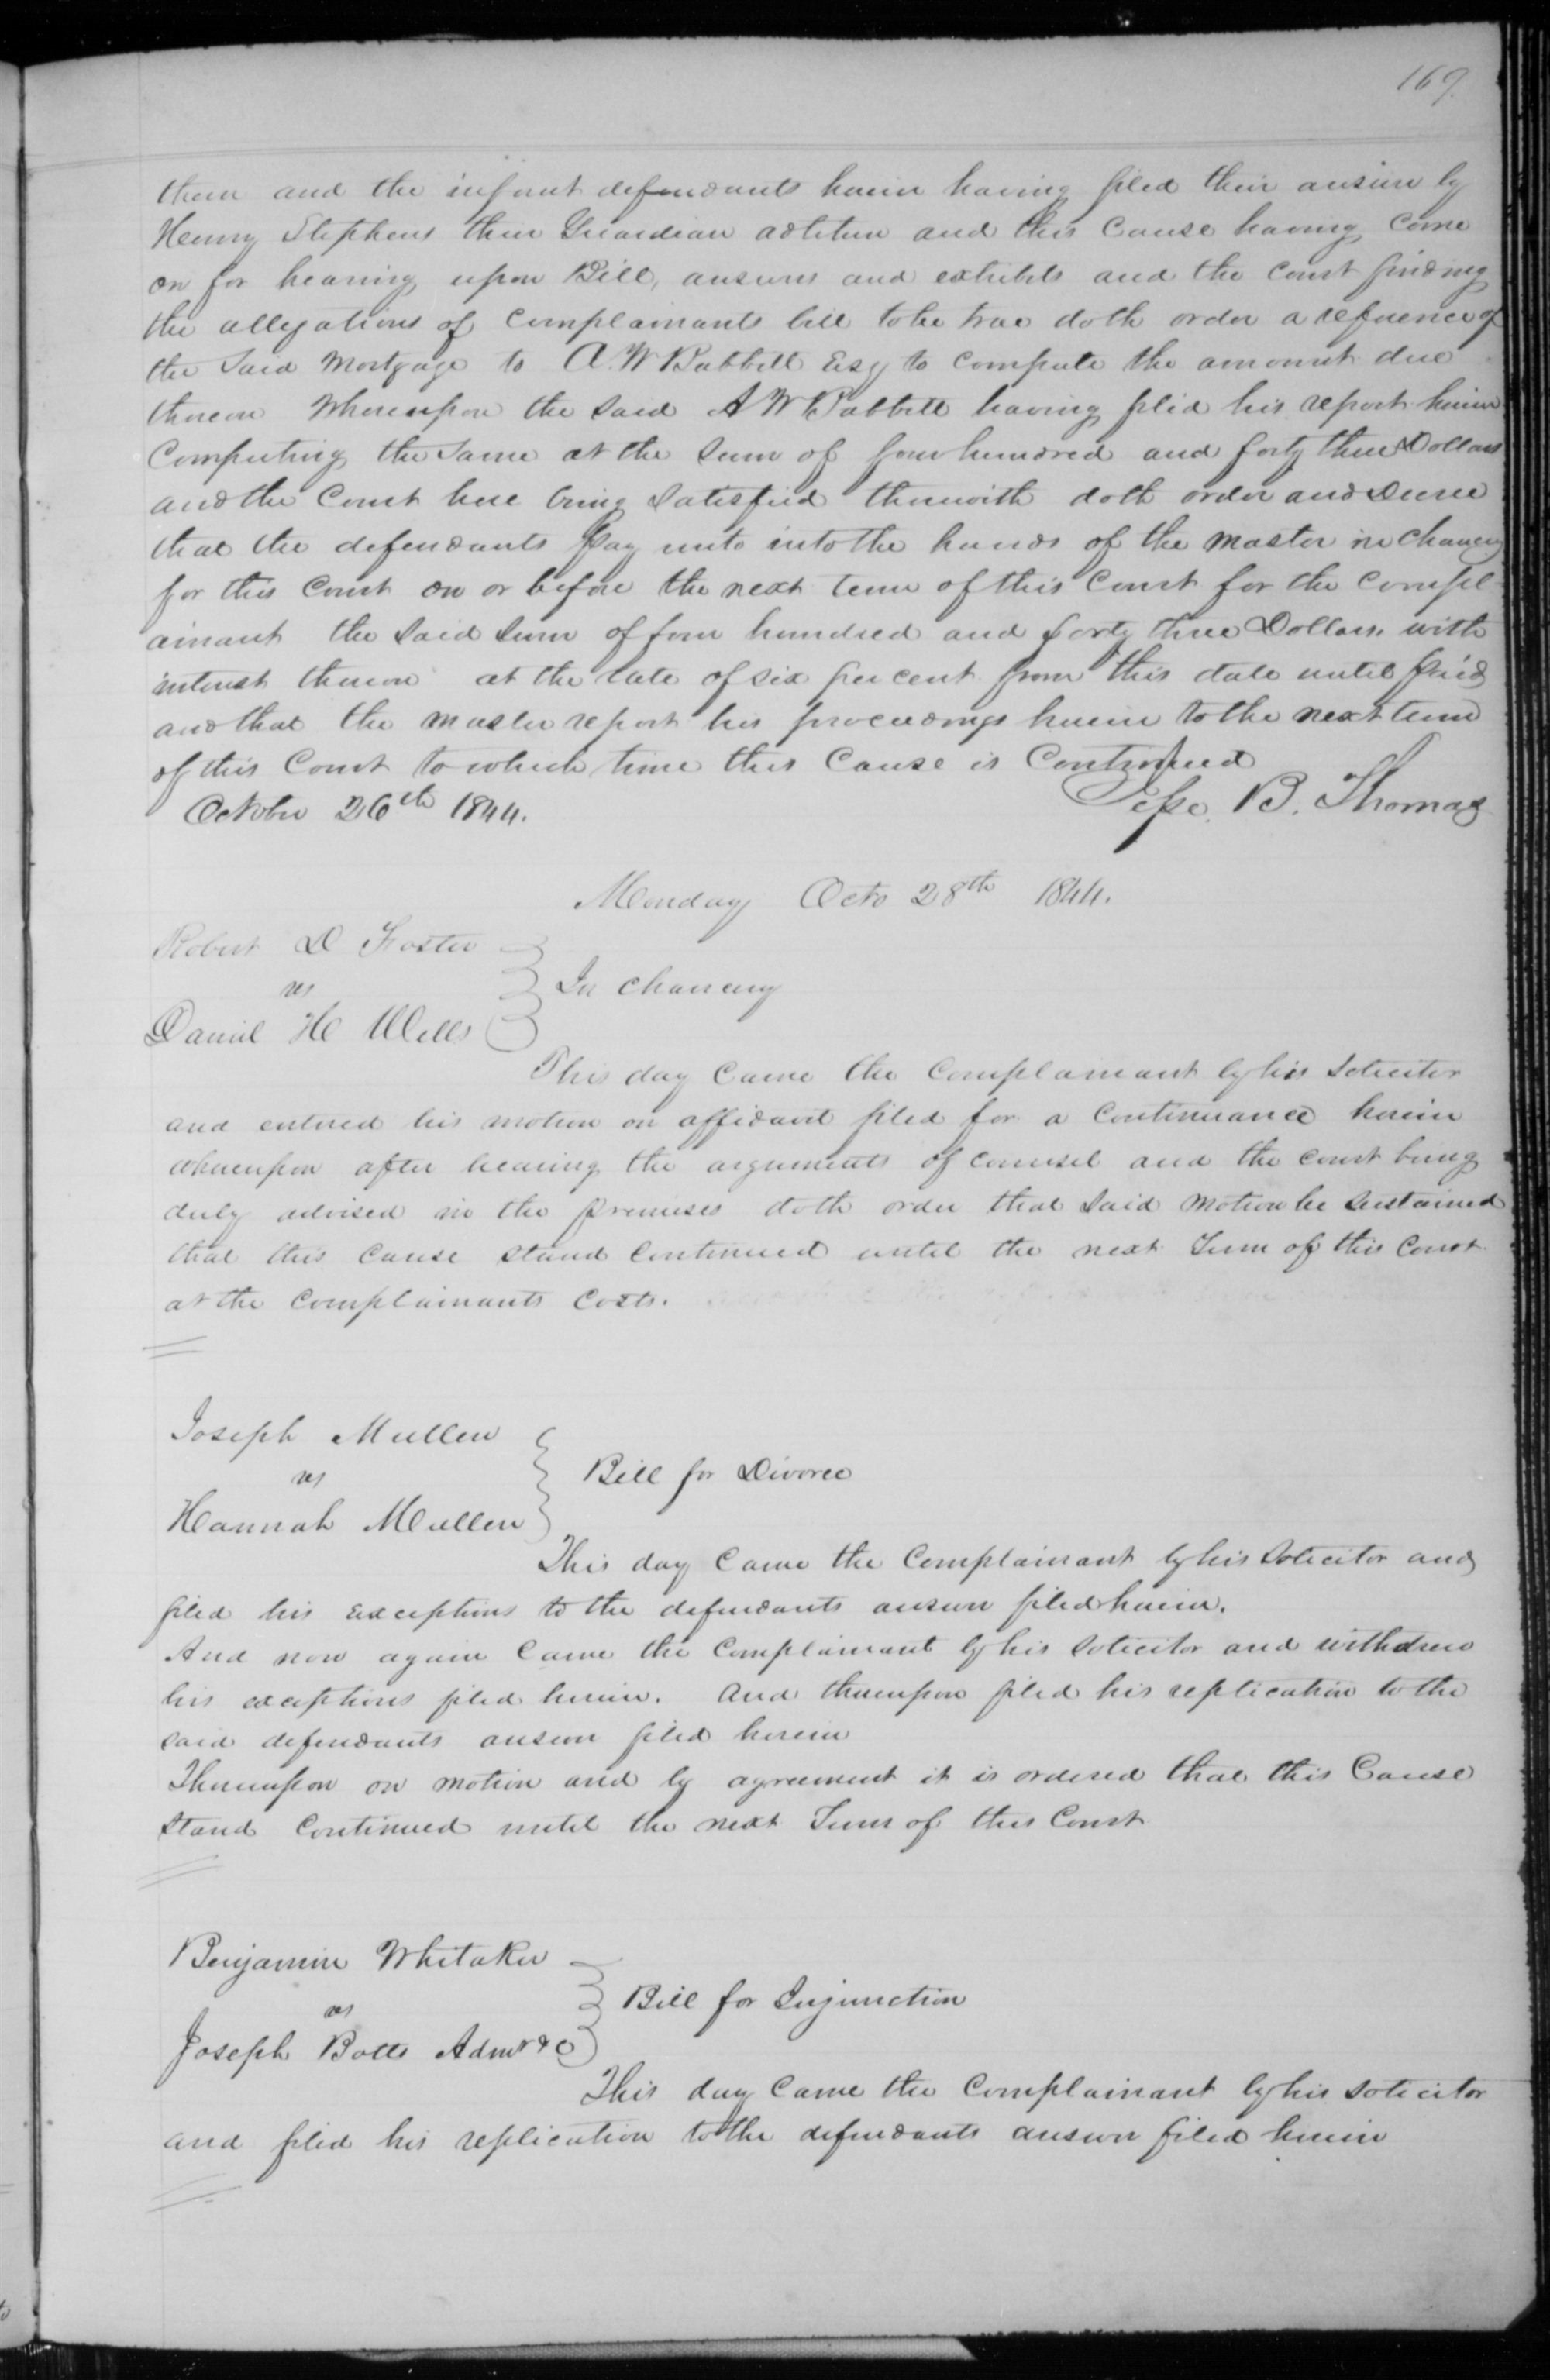 169.
them and the infant defendants herein having filed their answer by
Henry Stephens their Guardian adlitem and this Cause having Come
on for hearing upon Bill, answers and exhibits and the Court finding
the allegations of Complainants bill to be true doth order a reference of
the Said Mortgage to A. W Babbitt Esq to Compute the amount due
thereon Whereupon the said A W Babbitt having filed his report herein
Computing the Same at the Sum of four hundred and forty three Dollars
and the Court here being Satisfied therewith doth order and Decree
that the defendants Pay unto into the hands of the Master in Chancery
for this Court on or before the next term of this Court for the Compl
ainant the Said Sum of four hundred and forty three Dollars with
interest thereon at the rate of six per cent from this date until paid
and that the master report his proceedings herein to the next term
of this Court to which time this Cause is Continued
October 26th 1844. Jesse. B. Thomas
Monday Octo 28th 1844.
Robert D Foster
vs
In Chancery
Daniel H Wells
This day Came the Complainant by his Solicitor
and entered his motion on affidavit filed for a Continuance herein
whereupon after hearing the arguments of Counsel and the Court being
duly advised in the premises doth order that Said Motion be Sustained
that this Cause stand Continued until the next Term of this Court
at the Complainants Costs.
Joseph Mullen
vs
Bill for Divorce
Hannah Mullen
This day Came the Complainant by his Solicitor and
filed his Exceptions to the defendants answer filed herein.
And now again Came the Complainant by his Solicitor and withdrew
his exceptions filed herein. And thereupon filed his replication to the
said defendants answer filed herein
Thereupon on motion and by agreement it is ordered that this Cause
Stand Continued until the next Term of this Court
Benjamin Whitaker
vs
Bill for Injunction
Joseph Botts Admr &c
This day Came the Complainant by his Solicitor
and filed his replication to the defendants answer filed herein